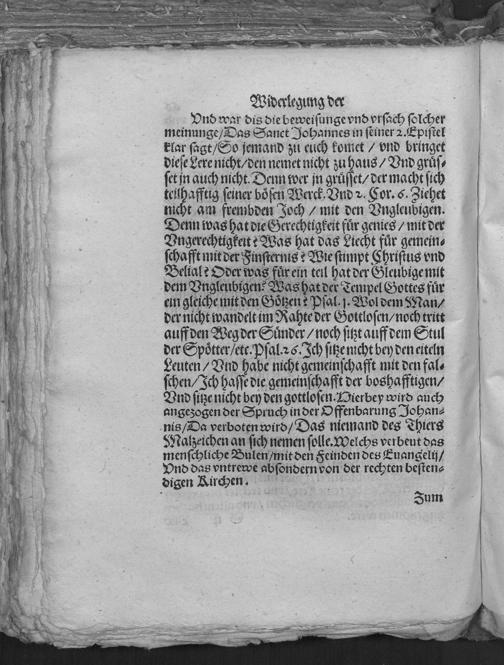 Widerlegung der
Vnd war dis die beweisunge vnd vrsach solcher
meinunge/Das Sanct Johannes in seiner 2. Epistel
klar sagt/So jemand zu euch komet/vnd bringet
diese Lere nicht/den nemet nicht zu haus/Vnd grüs-
set jn auch nicht. Denn wer jn grüsset/der macht sich
teilhafftig seiner bösen Werck. Vnd 2. Cor. 6. Ziehet
nicht am frembden Joch/mit den Vngleubigen.
Denn was hat die Gerechtigkeit für genies/mit der
Vngerechtigkeit? Was hat das Liecht für gemein-
schafft mit der Finsternis? Wie stimpt Christus vnd
Belial? Oder was für ein teil hat der Gleubige mit
dem Vngleubigen? Was hat der Tempel Gottes für
ein gleiche mit den Götzen? Psal. 1. Wol dem Man/
der nicht wandelt im Rahte der Gottlosen/noch tritt
auff den Weg der Sünder/noch sitzt auff dem Stul
der Spötter/etc. Psal. 26. Ich sitze nicht bey den eiteln
Leuten/Vnd habe nicht gemeinschafft mit den fal-
schen/Ich hasse die gemeinschafft der boshafftigen/
Vnd sitze nicht bey den gottlosen. Hierbey wird auch
angezogen der Spruch in der Offenbarung Johan-
nis/Da verboten wird/Das niemand des Thiers
Malzeichen an sich nemen solle. Welchs verbeut das
menschliche Bulen/mit den Feinden des Euangelij/
Vnd das vntrewe absondern von der rechten besten-
digen Kirchen.
Zum